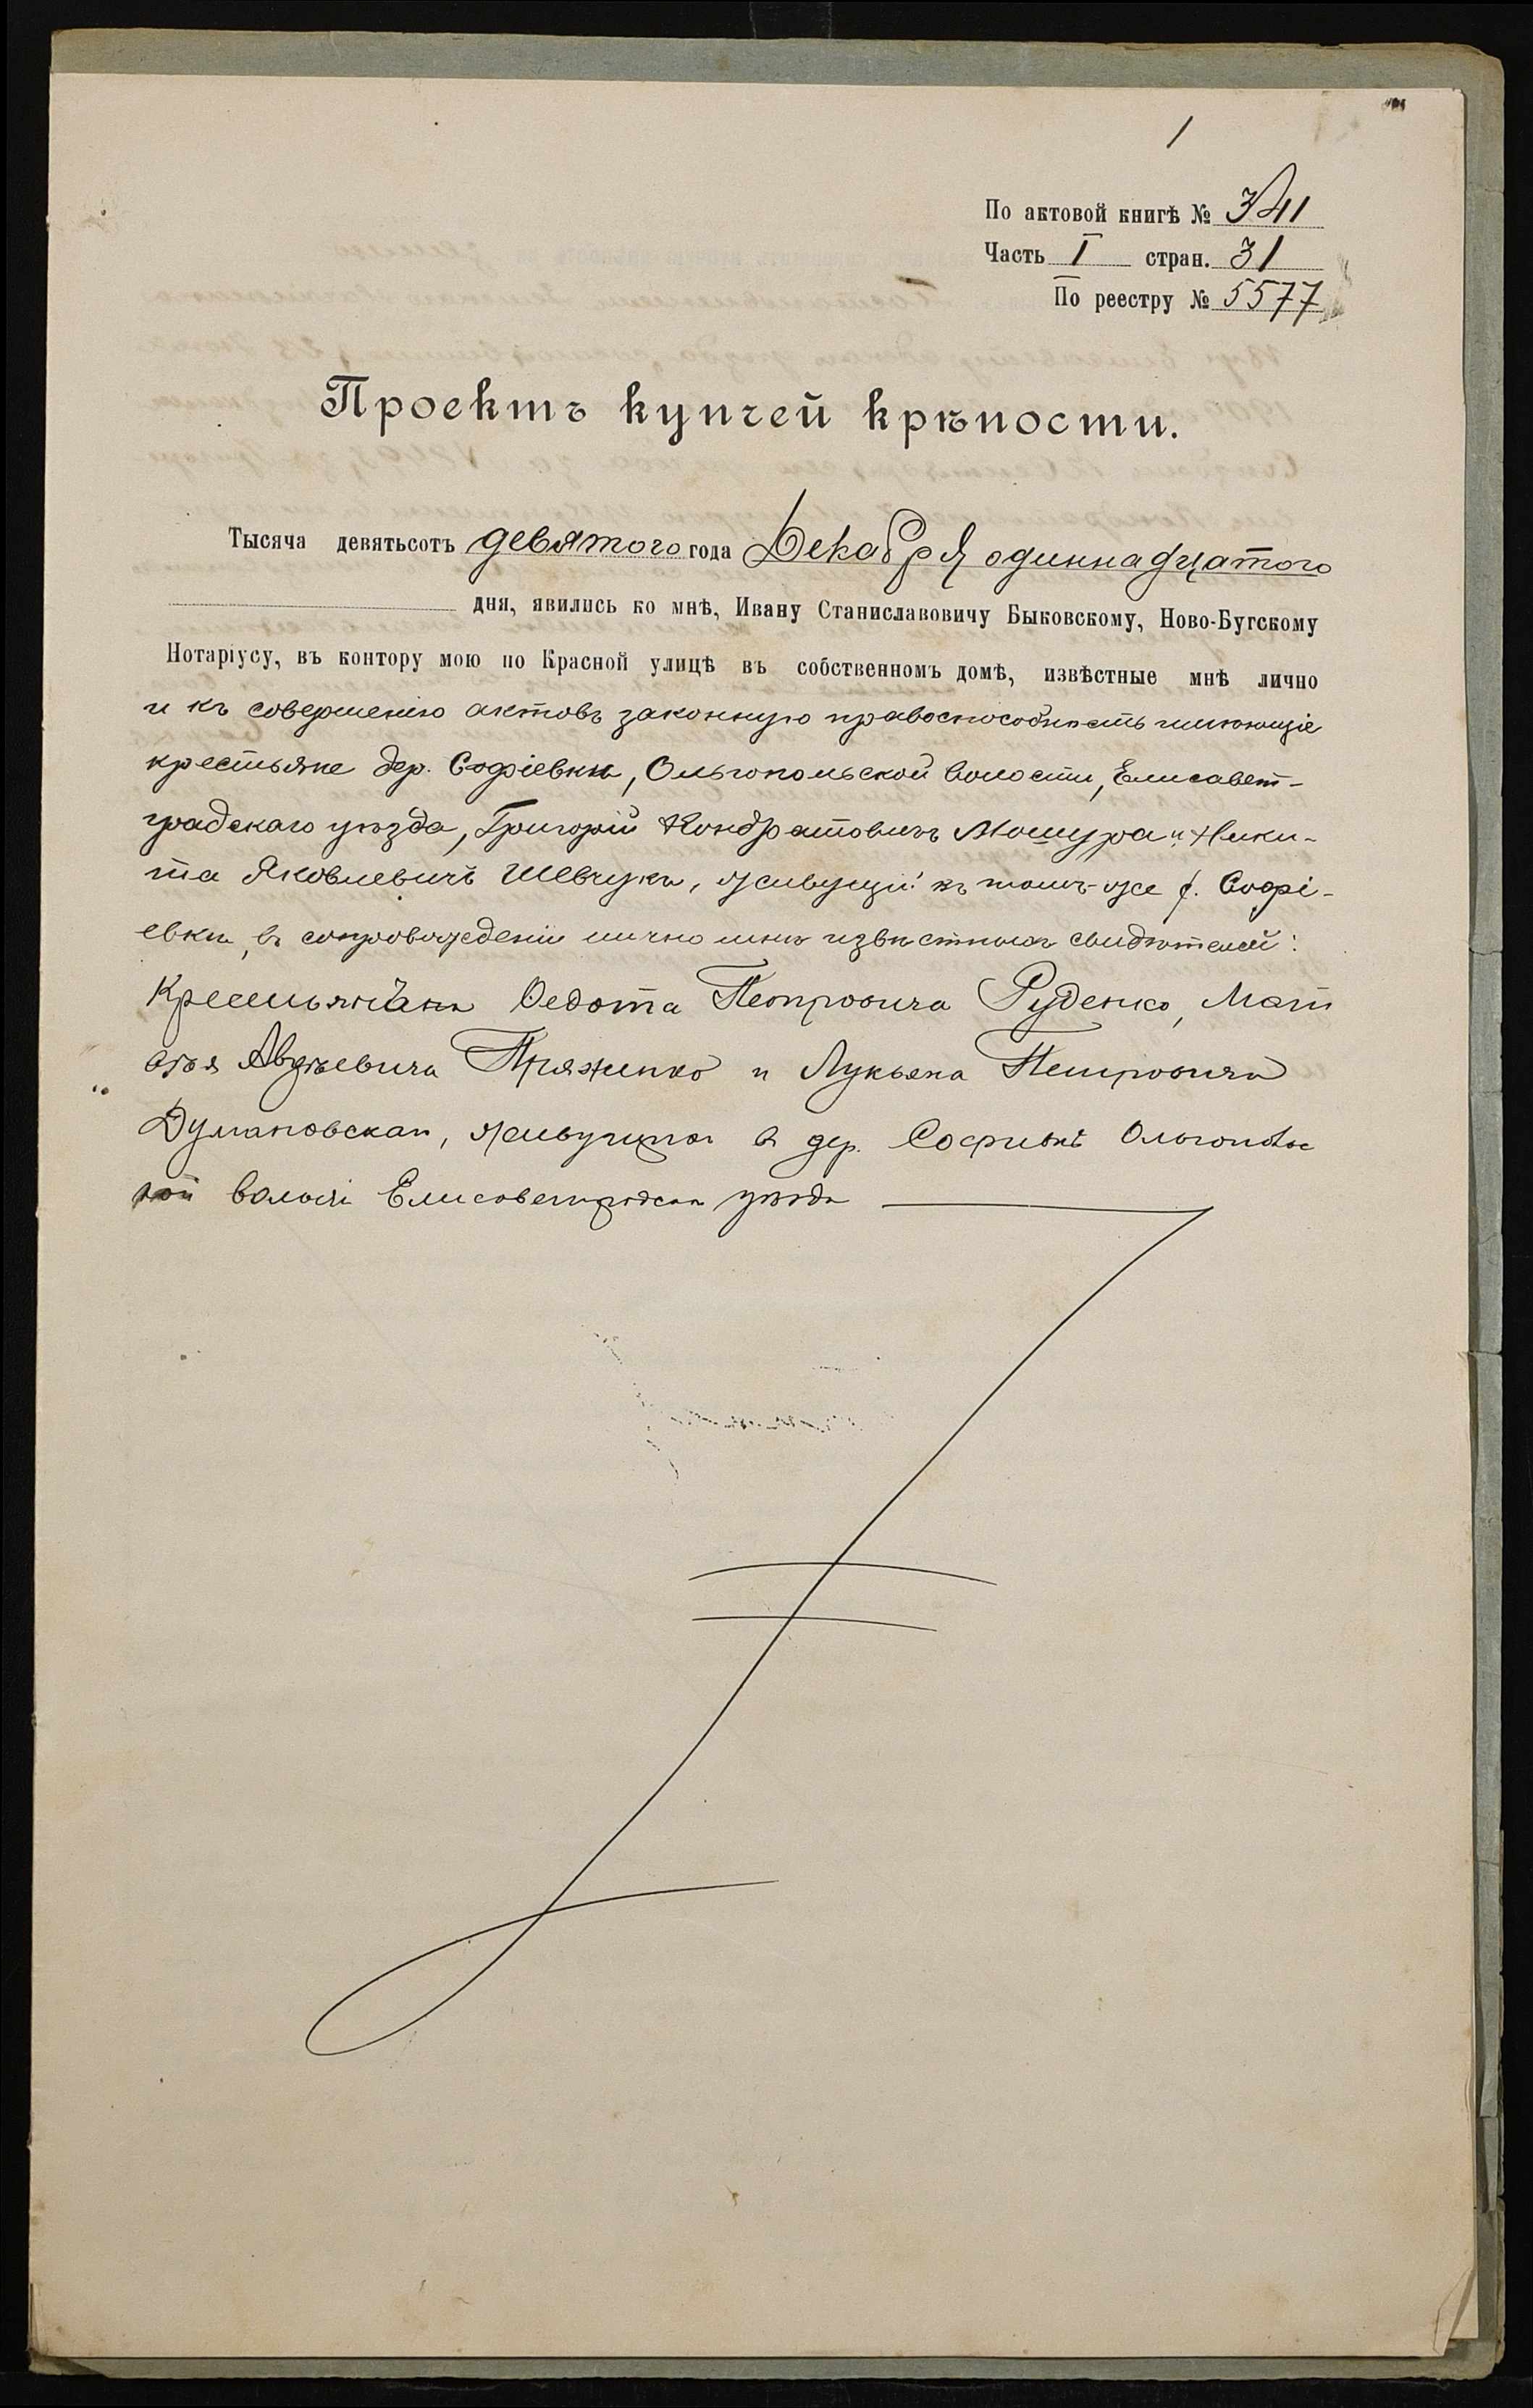 1
По актовой книгѣ № 341
Часть I стран. 31
По реестру № 5577
Проектъ купчей крѣпости.
Тысяча девятьсотъ девятого года Декабря одиннадцатого
дня, явились ко мнѣ, Ивану Станиславовичу Быковскому, Ново-Бугскому
Нотаріусу, въ контору мою по Красной улицѣ въ собственномъ домѣ, извѣстные мнѣ лично
и къ совершенію актовъ законную правоспособность имѣющіе
крестьяне дер. Софіевки, Ольгопольской волости, Елисавет-
градскаго уѣзда, Григорій Кондратовичъ Мошура и Ники-
та Яковлевичъ Шевчукъ, живущіе въ томъ-же д. Софі-
евки, въ сопровожденіи лично мнѣ извѣстныхъ свидѣтелей:
Крестьянъ Ѳедота Петровича Руденко, Мат
ѳѣя Авдѣевича Пряженко и Лукьяна Петровича
Думановскаго, живущихъ в дер. Софиевкѣ Ольгопольс
кой волости Елисаветградскаго уѣзда